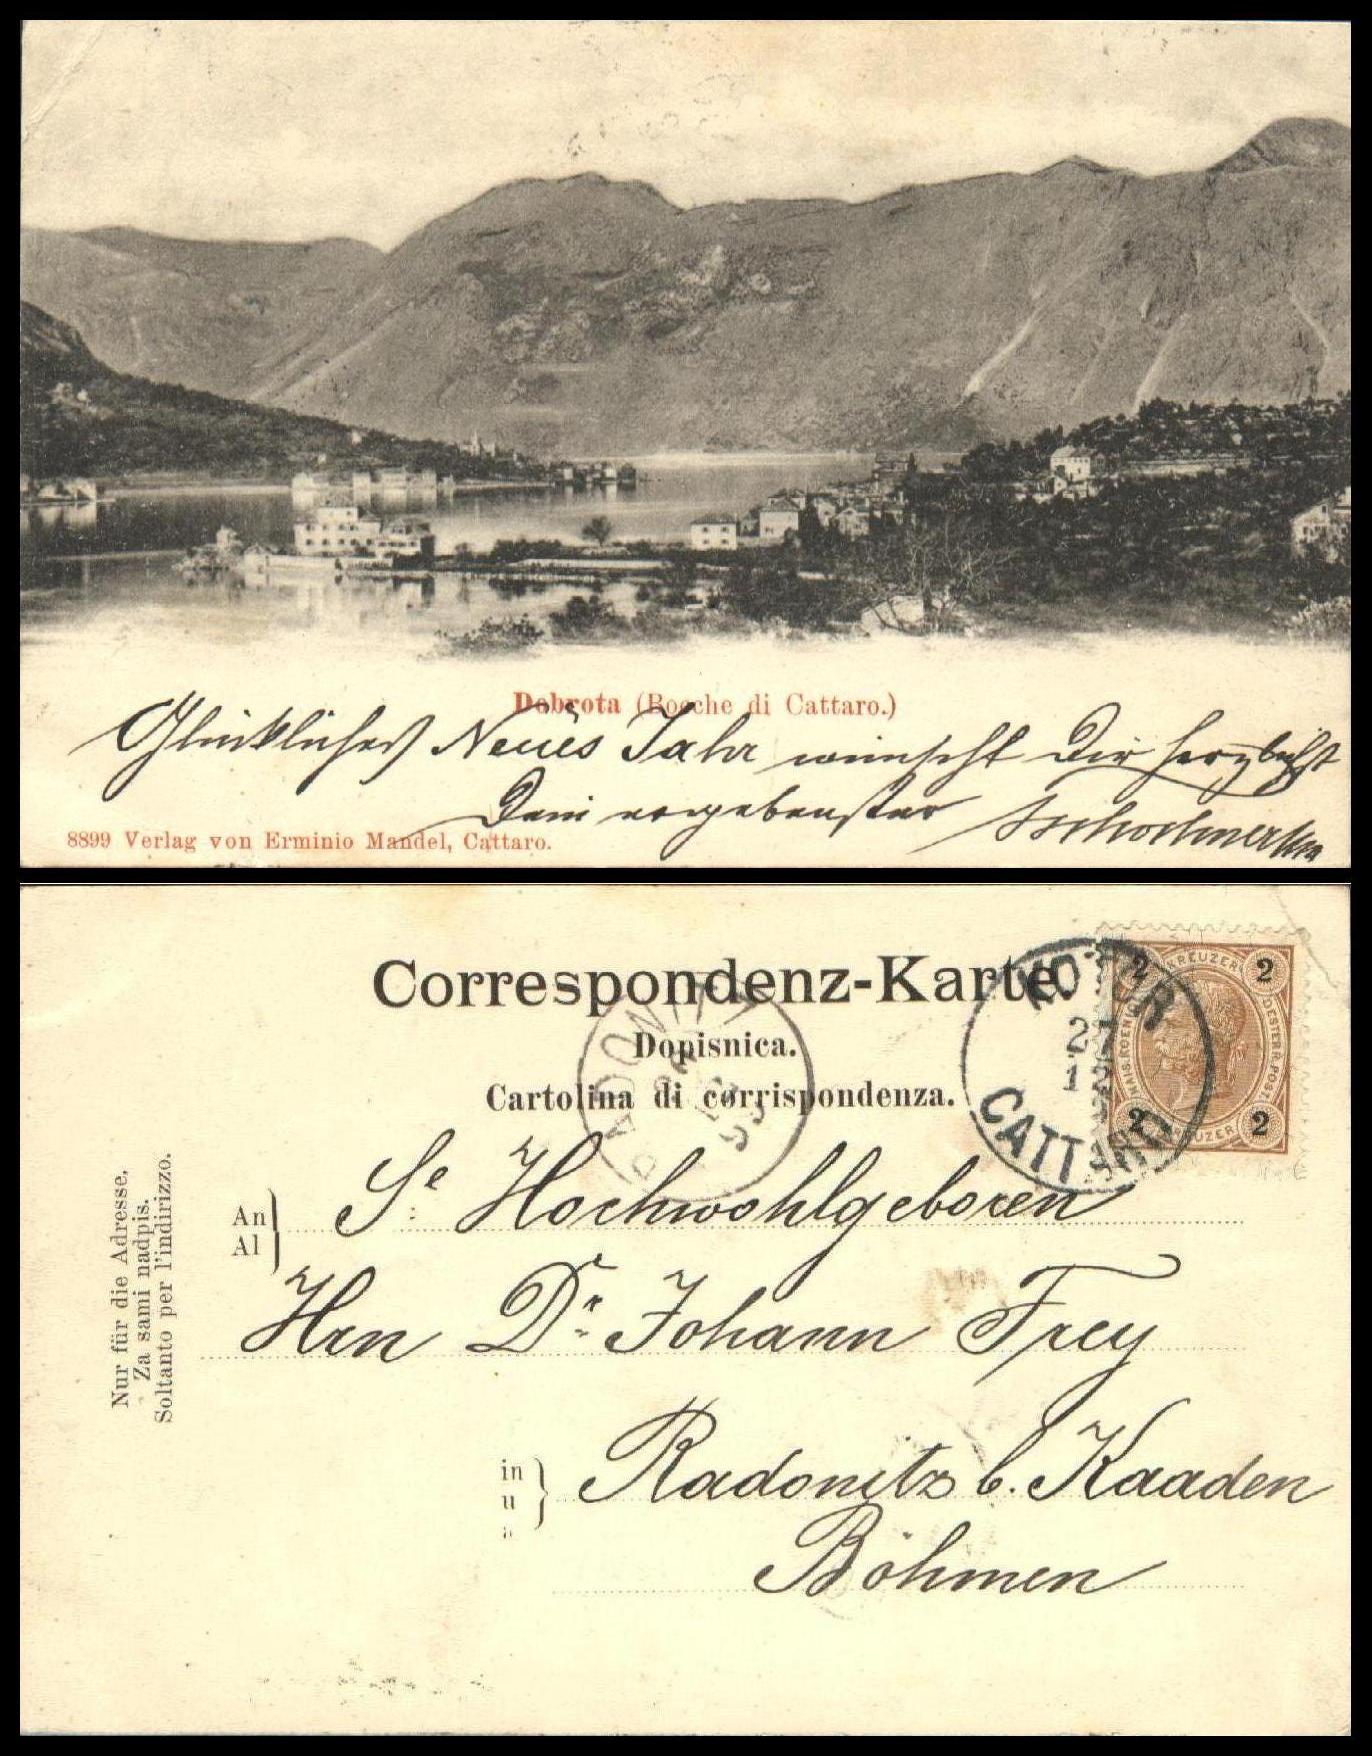 Dobrota (Bocche di Cattaro.)
Glückliches Neues Jahr wünscht Dir herzlichst
Dein ergebenster
8899 Verlag von Erminio Mandel, Cattaro.
Correspondenz-Karte.
Dopisnica.
Cartolina di corrispondenza.
KOTOR
27
12
CATTARO
2 KREUZER 2
KAIS. KOENIGL. OESTERR. POST
2 KREUZER 2
RADONITZ
99
Nur für die Adresse.
Za sami nadpis.
Soltanto per l'indirizzo.
An
Al
Sr Hochwohlgeboren
Hrn Dr Johann Frey
in
u
a
Radonitz b. Kaaden
Böhmen